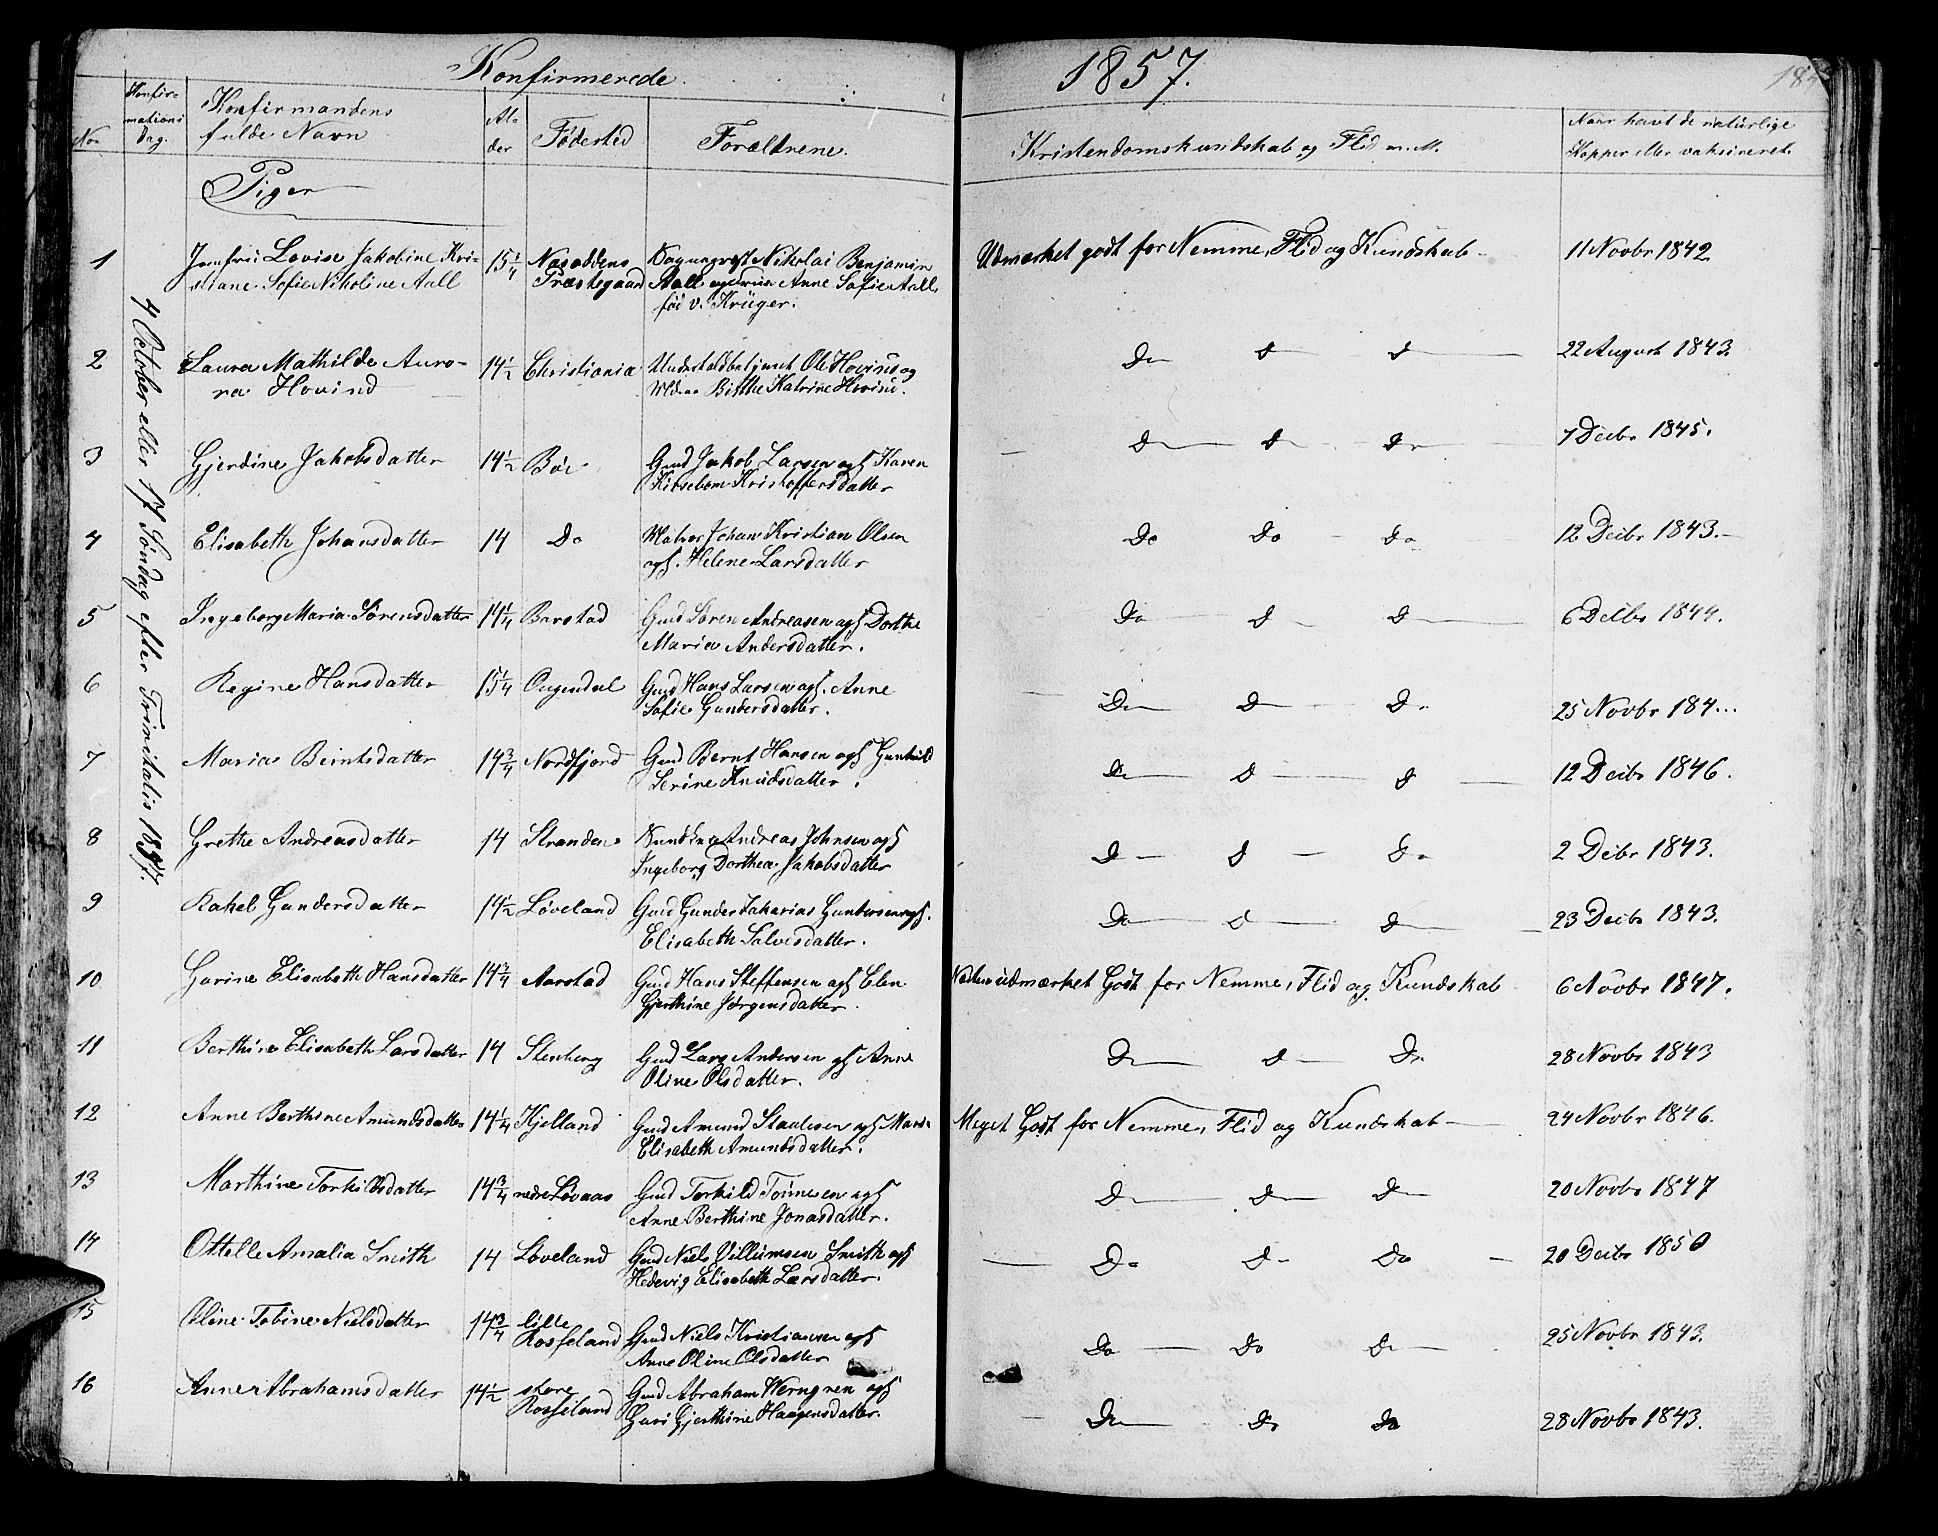 Konfirmerede.
1857.
No
Konfir-
mations
Dag.
Konfirmandens
fulde Navn
Al-
der
Fødested
Forældrene.
Kristendomskundskab og Flid m. M.
Naar havt de naturlige
Kopper eller vaksineret.
Piger
4 October eller 17 Søndag efter Trinitatis 1857.
1 Jomfru Lovise Jakobine Kri- 15 1/4 Næsoddens Nikolai Benjamin Udmærket godt for Nemme, Flid og Kundskab - 11 Novbr 1842
stiane Sofie Nikoline Aall Præstegaard Aall og Frue Anne Sofie Aall
fød v. Krüger.
2 Laura Mathilde Auro- 14 1/2 Christiania Ole Hovind og Do d d 22 August 1843.
ra Hovind Katrine Hovind.
3 Gjerdine Jakobsdatter 14 1/2 Bøe Gmd Jakob Larsen og H Karen Do d do 7 Decbr 1845.
Kirsebom Kristoffersdatter
4 Elisabeth Johansdatter 14 Do Matros Johan Kristian Olsen Do Do Do 12 Decbr 1843.
og H. Helene Larsdatter
5 Ingeborg Maria Sørensdatter 14 1/4 Barstad Gmd Søren Andreasen og H Dorthe Do d d 6 Decbr 1844.
Maria Andersdatter.
6 Regine Hansdatter 15 1/4 Ougendal Gmd Hans Larsen og H. Anne Do Do Do 25 Novbr 184...
Sofie Gundersdatter.
7 Maria Berntsdatter 14 3/4 Nordfjord Gmd Bernt Hansen og H Gunhild Do d d 12 Decbr 1846.
Serine Knudsdatter.
8 Grethe Andreasdatter 14 Stranden Andreas Johnsen og H d d do 2 Debr 1843.
Ingeborg Dorthea Jakobsdatter
9 Rakel Gundersdatter 14 1/2 Løveland Gmd Gunder Zakarias Gundersen og H. Do d d 23 Decbr 1843.
Elisabeth Salvesdatter.
10 Gurine Elisabeth Hansdatter 14 3/4 Aarstad Gmd Hans Steffensen og H Elen Næsten udmærket Godt for Nemme, Flid og Kundskab 6 Novbr 1847.
Gjerthine Jørgensdatter.
11 Berthine Elisabeth Larsdatter 14 Stenberg Gmd Lars Andersen og H Anne Do d Do 28 Novbr 1843
Oline Olsdatter.
12 Anne Berthine Amundsdatter 14 1/4 Kjelland Gmd Amund Staalesen og H Maria Meget Godt for Nemme, Flid og Kundskab 24 Novbr 1846.
Elisabeth Amundsdatter.
13 Marthine Torkildsdatter 14 3/4 nedre Løvaas Gmd Torkild Tønnesen og H Do Do Do 20 Novbr 1847
Anne Berthine Jonasdatter.
14 Ottelle Amalia Smith 14 Løveland Gmd Niels Villumsen Smith og H Do Do Do 20 Decbr 1850
Hedevig Elisabeth Larsdatter.
15 Oline Tobine Nielsdatter 14 3/4 lille Gmd Niels Kristiansen og H Do Do Do 25 Novbr 1843.
Rosseland Anne Oline Olsdatter
16 Anne Abrahamsdatter 14 1/2 store Gmd Abraham Werngren og H Do Do Do 28 Novbr 1843.
Rosseland Guri Gjerthine Haagensdatter.